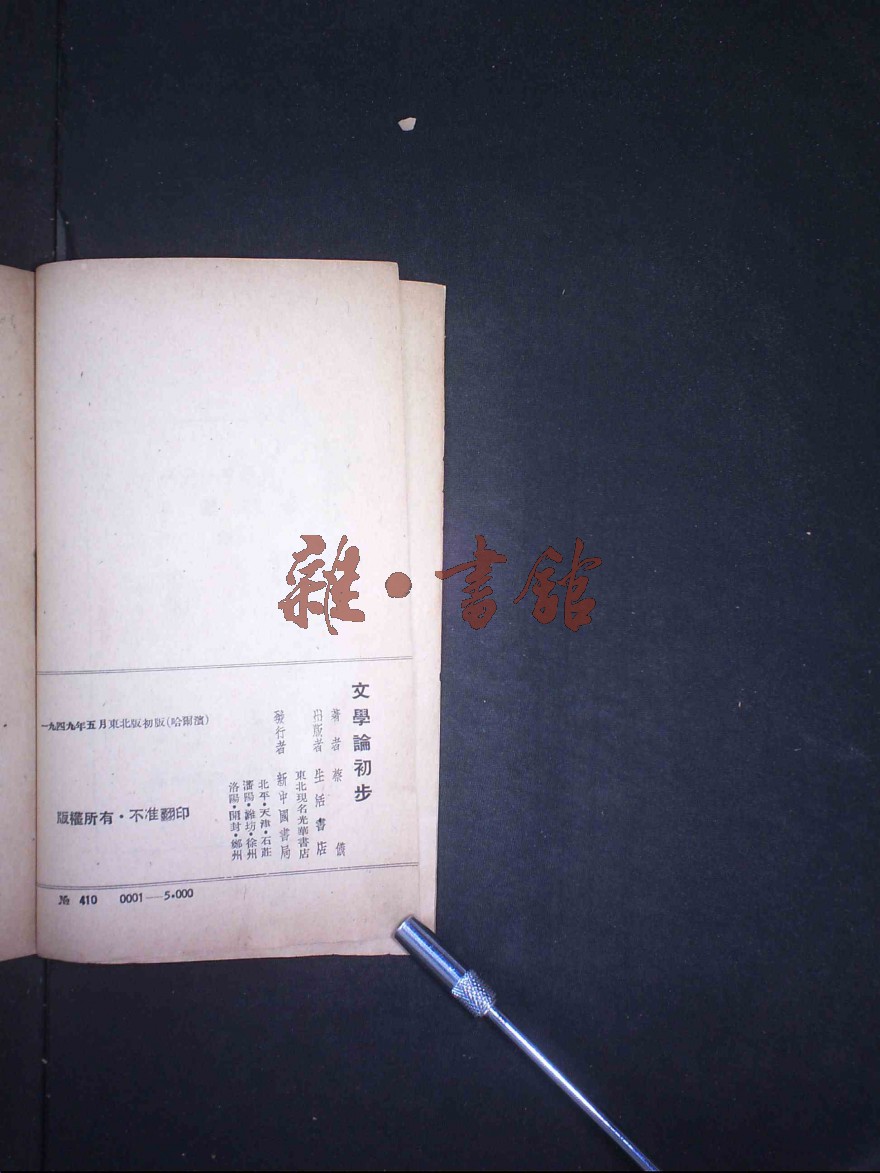 文學論初步
著者 蔡儀
出版者 生活書店
東北現名光華書店
發行者 新中國書局
北平・天津・石莊
瀋陽・濰坊・徐州
洛陽・開封・鄭州
一九四九年五月東北版初版(哈爾濱)
版權所有・不准翻印
№ 410 0001—5•000
雜•書館